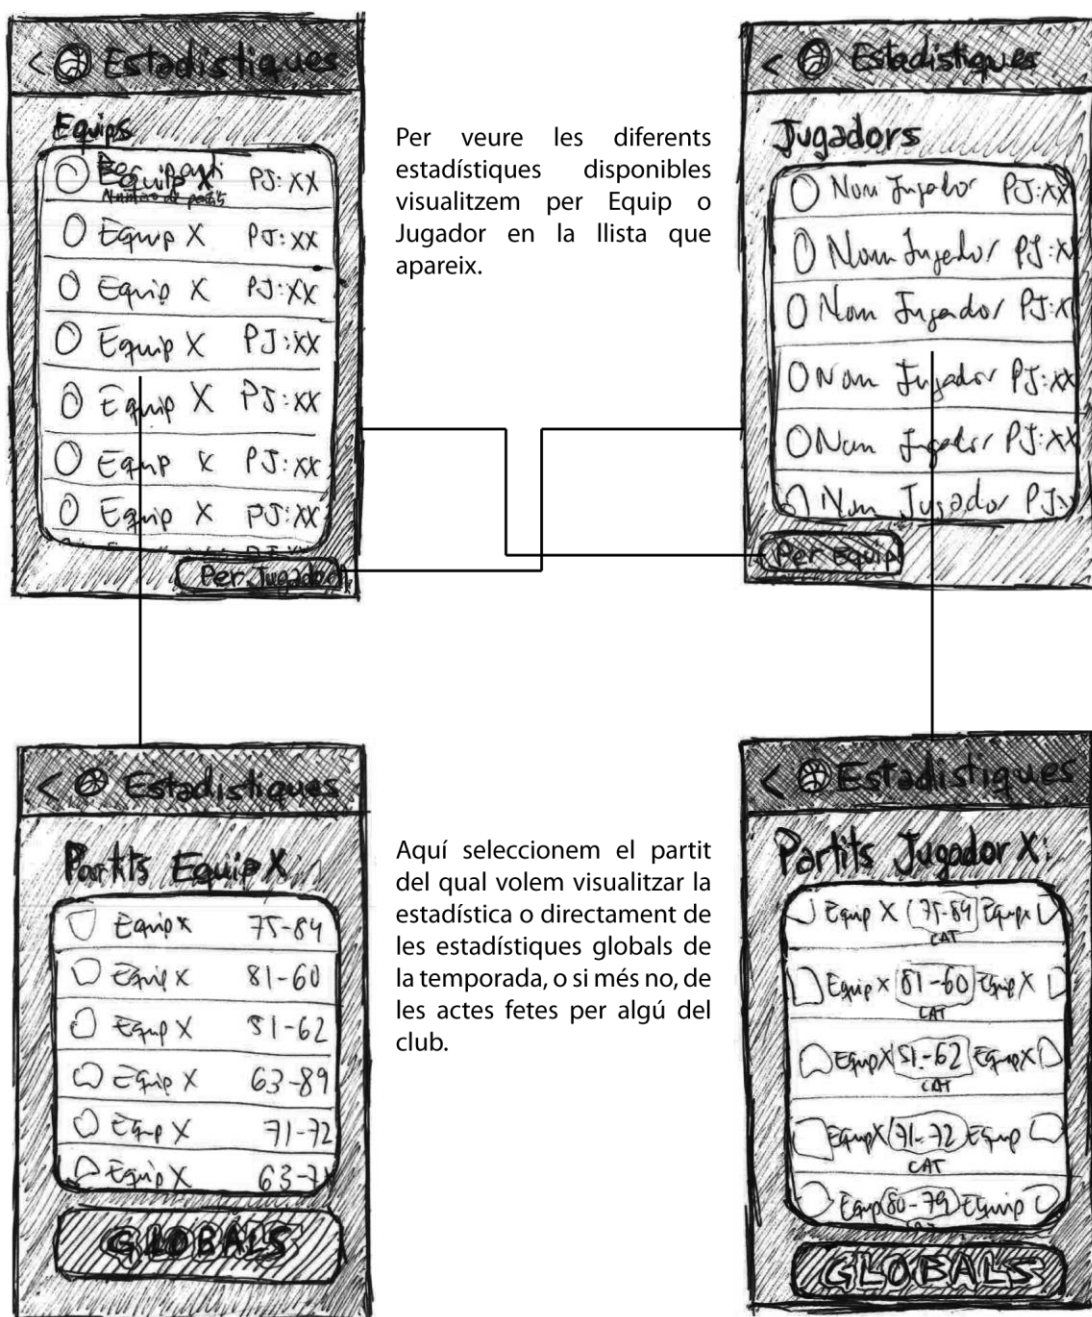 < Estadístiques
Equips
Equip X PJ:XX
Número de partits
Equip X PJ:XX
Equip X PJ:XX
Equip X PJ:XX
Equip X PJ:XX
Equip X PJ:XX
Equip X PJ:XX
Per Jugador
Per veure les diferents
estadístiques disponibles
visualitzem per Equip o
Jugador en la llista que
apareix.
< Estadístiques
Jugadors
Nom Jugador PJ:XX
Nom Jugador PJ:X
Nom Jugador PJ:X
Nom Jugador PJ:XX
Nom Jugador PJ:XX
Nom Jugador PJ:
Per Equip
< Estadístiques
Partits Equip X:
Equip X 75-84
Equip X 81-60
Equip X 51-62
Equip X 63-89
Equip X 71-72
Equip X 63-7
GLOBALS
Aquí seleccionem el partit
del qual volem visualitzar la
estadística o directament de
les estadístiques globals de
la temporada, o si més no, de
les actes fetes per algú del
club.
< Estadístiques
Partits Jugador X:
Equip X 75-84 Equip X
CAT
Equip X 81-60 Equip X
CAT
Equip X 51-62 Equip X
CAT
Equip X 71-72 Equip
CAT
Equip 80-79 Equip
GLOBALS